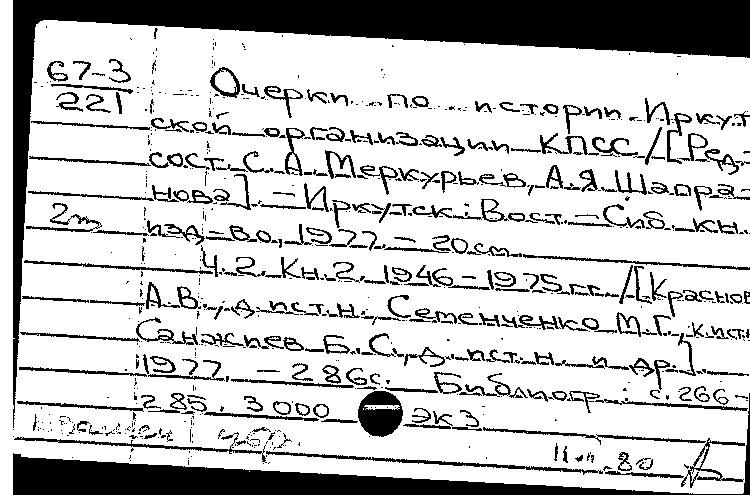 67-3
221
Очерки по истории Иркут-
ской организации КПСС/[Ред-
сост. С.А. Меркурьев, А.Я. Шапра-
нова]. - Иркутск: Вост.-Сиб. кн.
2т
изд-во, 1977. - 20см.
Ч.2. Кн.2. 1946-1975гг./[Краснов
А.В., д.ист.н., Сетенченко М.Г., к.ист.
Санжиев Б.С., д.ист.н. и др.].
1977. - 286с. Библиогр.: с.266-
285. 3000 экз
убр.